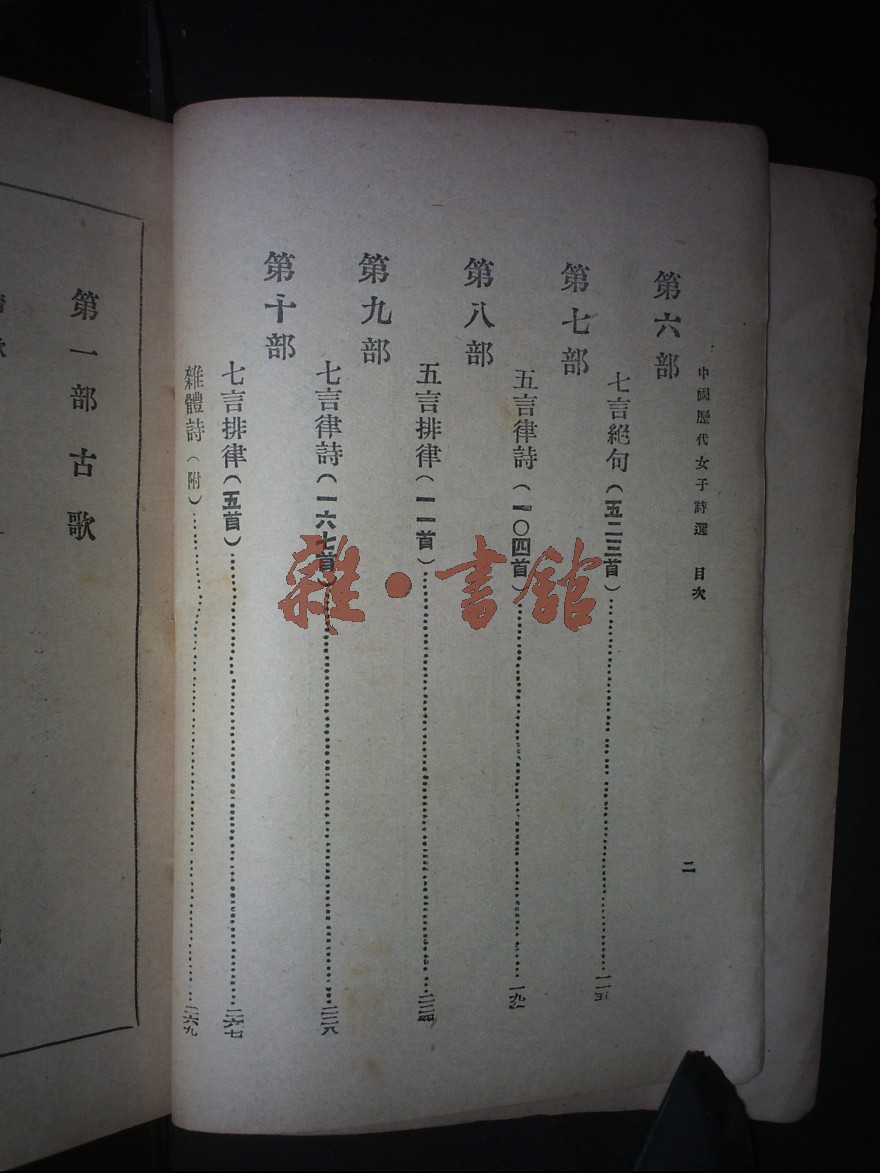 中國歷代女子詩選 目次 二
第六部
七言絕句(五二三首)
第七部
五言律詩(一〇四首)
第八部
五言排律(一一首)
第九部
七言律詩(一六七首) 二二八
第十部
七言排律(五首) 二六七
雜體詩(附) 二六九
第一部 古歌
雜·書館